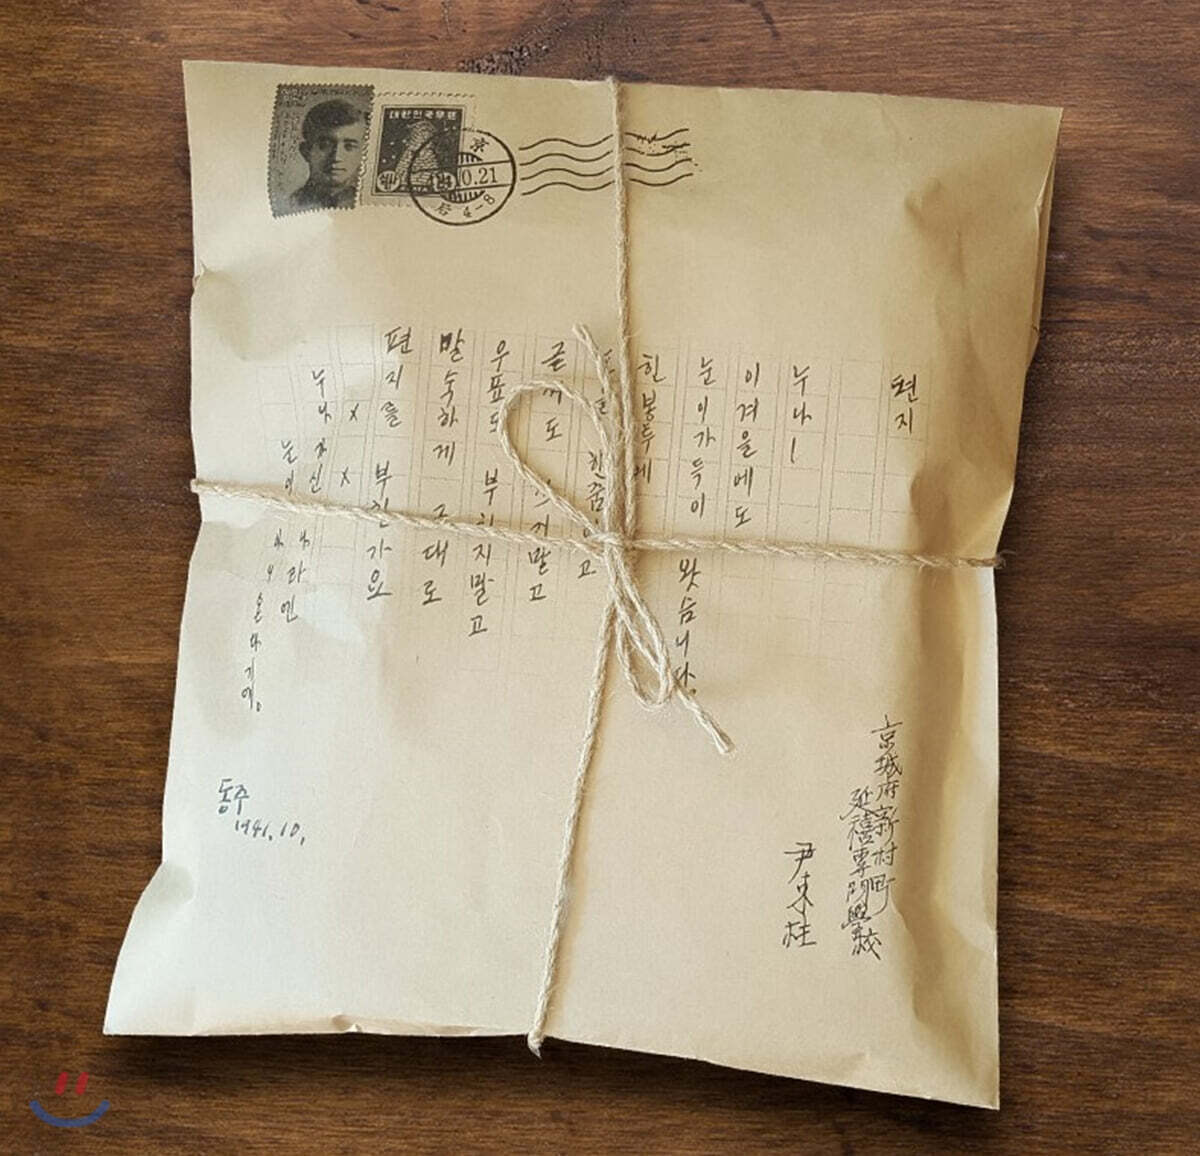 대한민국우표
京
0.21
后 4-8
편지
누나!
이 겨울에도
눈이 가득이 왓습니다.
한 봉투에
고
글씨도 쓰지말고
우표도 부치지말고
말숙하게 그대로
편지를 부칠가요
× ×
누나 가신 나라엔
눈이 아니 온다기에。
동주
1941.10,
京城府新村町
延禧專門學校
尹東柱